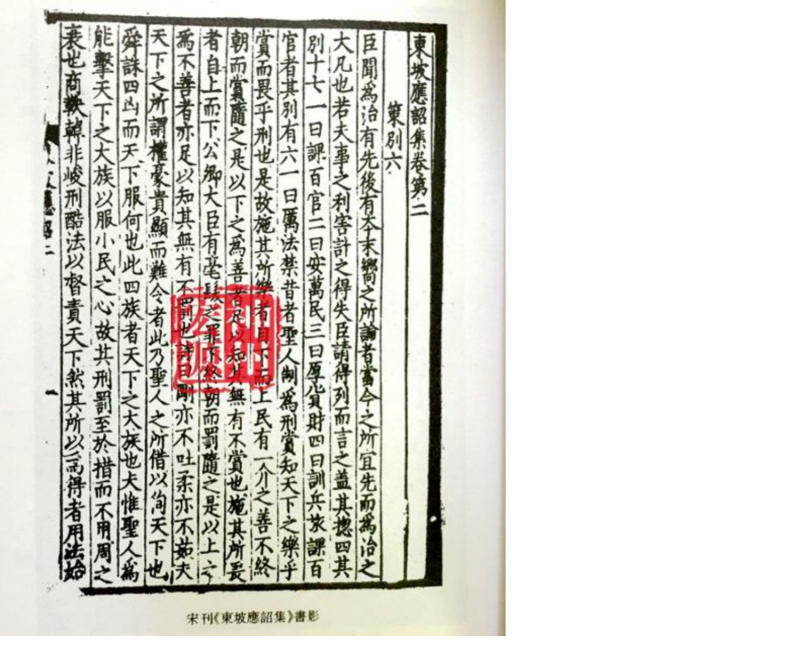 東坡應詔集卷第二
策別六
臣聞爲治有先後有本末嚮之所論者當今之所宜先而爲治之
大凡也若夫事之利害計之得失臣請得列而言之蓋其揔四其
別十七一曰課百官二曰安萬民三曰厚貨財四曰訓兵旅課百
官者其別有六一曰厲法禁昔者聖人制爲刑賞知天下之樂乎
賞而畏乎刑也是故施其所樂者自下而上民有一介之善不終
朝而賞隨之是以下之爲善者足以知其無有不賞也施其所畏
者自上而下公卿大臣有毫髮之罪不終朝而罰隨之是以上之
爲不善者亦足以知其無有不罰也詩曰剛亦不吐柔亦不茹夫
天下之所謂權豪貴顯而難令者此乃聖人之所借以徇天下也
舜誅四凶而天下服何也此四族者天下之大族也夫惟聖人爲
能擊天下之大族以服小民之心故其刑罰至於措而不用周之
衰也商鞅韓非峻刑酷法以督責天下然其所以爲得者用法始
宋刊《東坡應詔集》書影